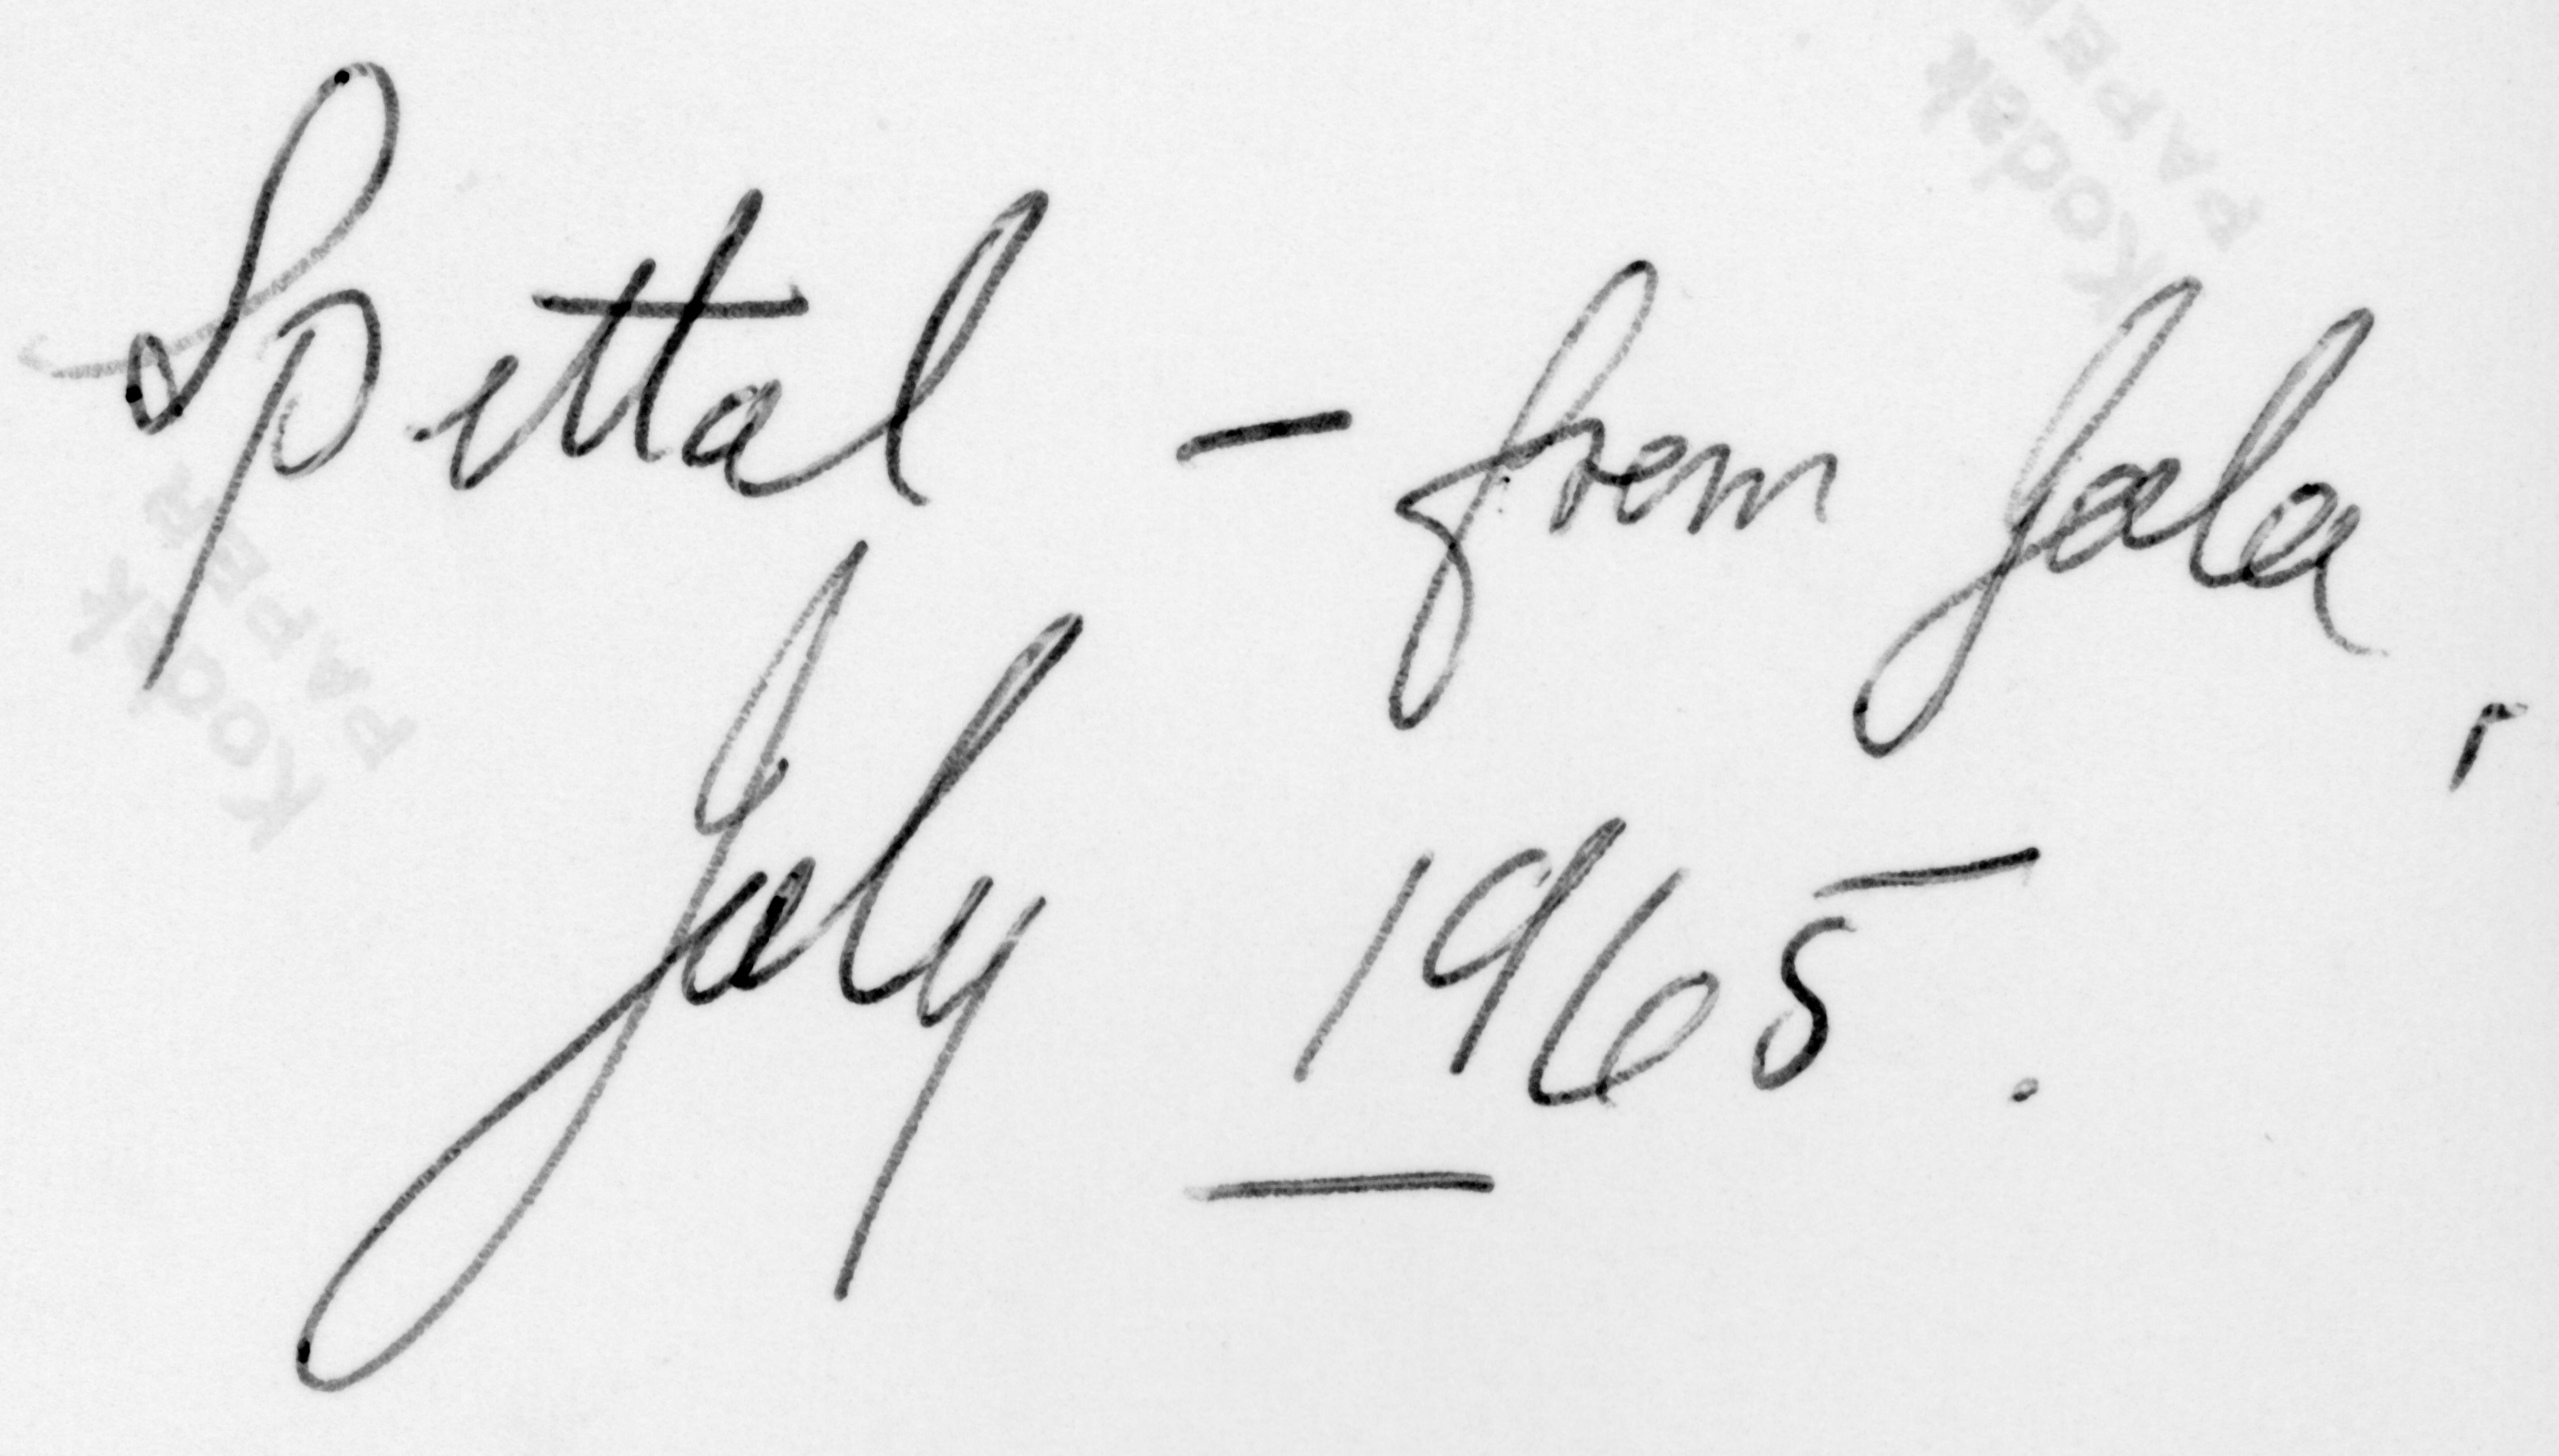 Spittal – from
July 1965.
Kodak
PAPER
Kodak
PAPER